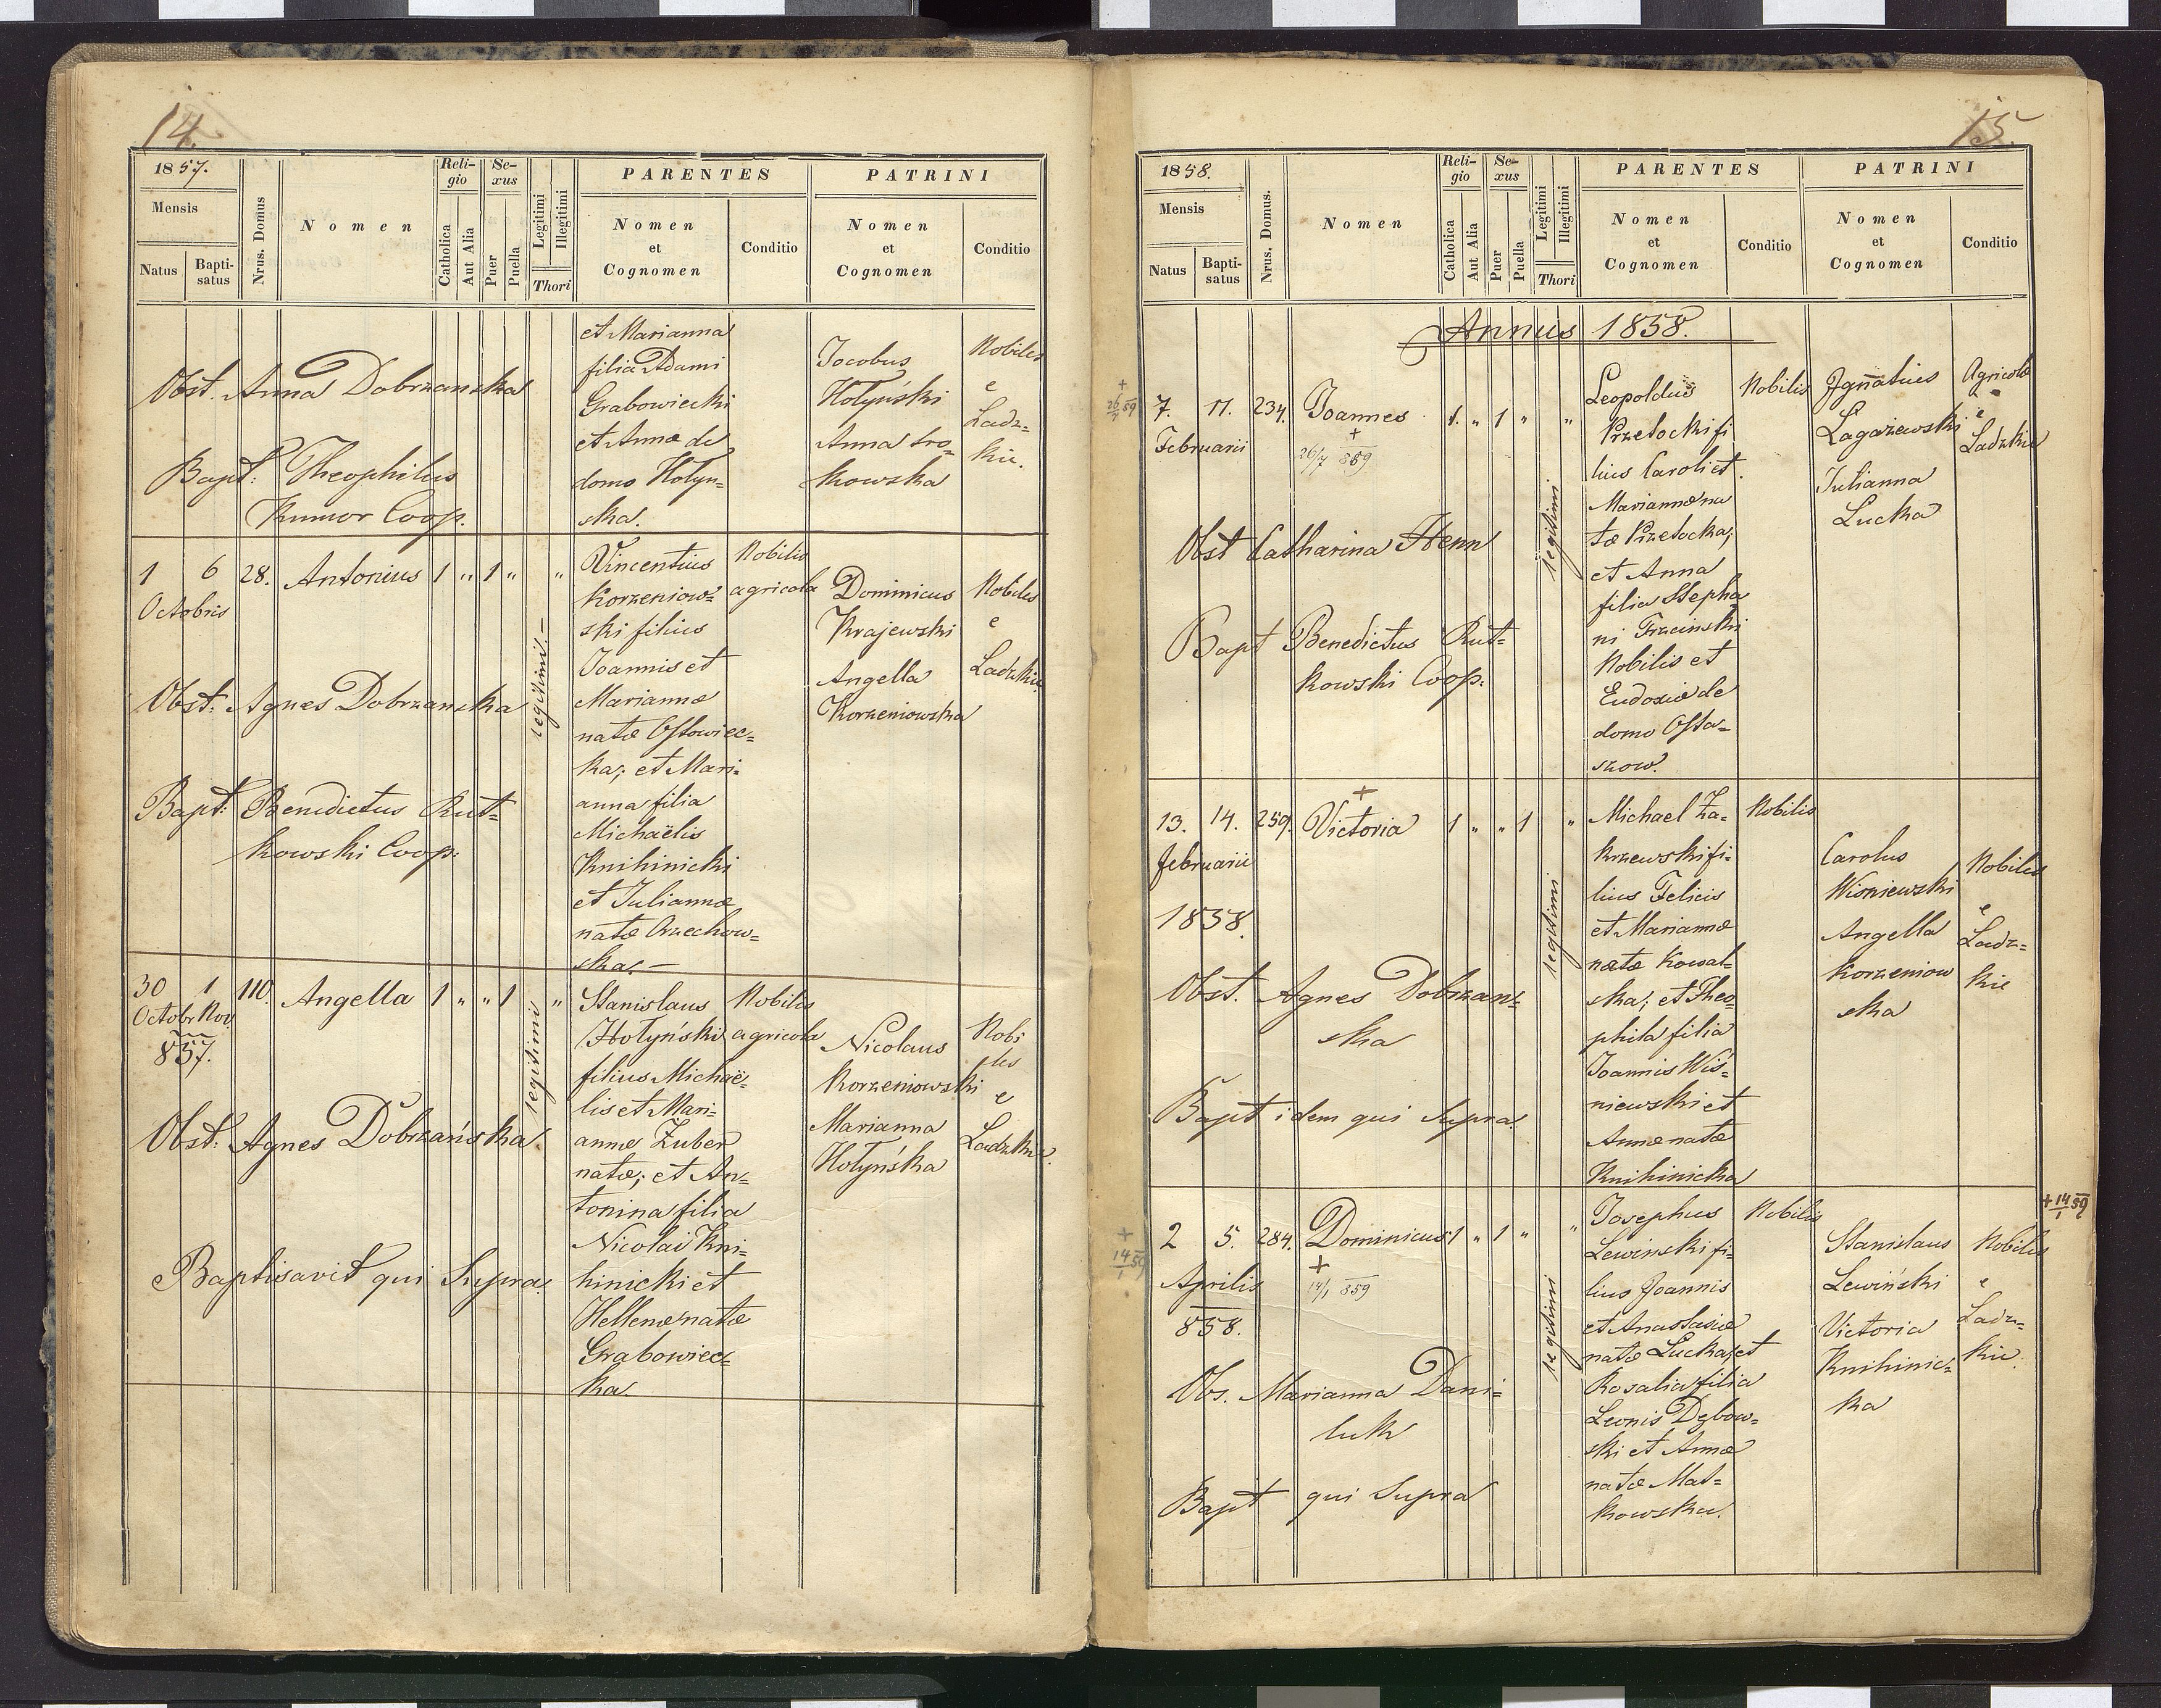 14.
1857.
Mensis
Natus
Bapti-
satus
Nrus. Domus
Nomen
Reli-
gio
Catholica
Aut Alia
Se-
xus
Puer
Puella
Legitimi
Illegitimi
Thori
PARENTES
Nomen
et
Cognomen
Conditio
PATRINI
Nomen
et
Cognomen
Conditio
Obst. Anna Dobrzanska
Bapt: Theophilus
Kumor Coop.
et Marianna
filia Adami
Grabowiecki
et Annæ de
domo Hołyn=
ska.
Jocobus
Hołyński
Anna
kowska
Nobiles
e
Ladz=
kie.
1 6 28. Antonius 1 " 1 " "
Octobris
Obst: Agnes Dobrzanska
Bapt: Benedictus Rut=
kowski Coop:
legitimi.—
Vincentius
Korzeniow=
ski filius
Joannis et
Mariannæ
natæ Ostowiec=
ka; et Mari=
anna filia
Michaëlis
Knihinicki
et Juliannæ
natæ Orzechow=
ska.—
Nobilis
agricola
Dominicus
Krajewski
Angella
Korzeniowska
Nobiles
e
Ladzkie
30 1 110. Angella 1 " " 1 "
Octobr Nov
857.
Obst: Agnes Dobrzańska
Baptisavit qui Supra.
legitimi
Stanislaus
Hołyński
filius Michaë=
lis et Mari=
annæ Zuber
natæ; et An=
tonina filia
Nicolai Kni=
hinicki et
Hellenæ natæ
Grabowiec=
ka.
Nobilis
agricola
Nicolaus
Korzeniowski
Marianna
Hołyńska
Nobi
les
e
Ladzkie.
15.
1858.
Mensis
Natus
Bapti-
satus
Nrus. Domus.
Nomen
Reli-
gio
Catholica
Aut Alia
Se-
xus
Puer
Puella
Legitimi
Illegitimi
Thori
PARENTES
Nomen
et
Cognomen
Conditio
PATRINI
Nomen
et
Cognomen
Conditio
Annus 1858.
+
26/7 59
7. 11. 234. Joannes 1. " 1 " "
Februarii
+
26/7 859
Obst Catharina Henn
Bapt Benedictus Rut=
kowski Coop:
legitimi
Leopoldus
Przetocki fi
lius Caroli et
Mariannæ na
tæ Przetocka;
et Anna
filia Stepha
ni Trzcinski
Nobilis et
Eudoxiæ de
domo Osta=
szow.
Nobilis
Jgnatius
Lagazewski
Julianna
Lucka
Agricolæ
e
Ladzkie
13. 14. 259. Victoria 1 " " 1 "
+
februarii
1858.
Obst. Agnes Dobrzan=
ska
Bapt idem qui Supra.
legitimi
Michael Za=
krzewski fi=
lius Felicis
et Mariannæ
natæ Kowal=
ska; et Theo
phila filia
Joannis Wiś=
niewski et
Annæ natæ
Knihinicka
Nobilis
Carolus
Wisniewski
Angella
Korzeniow
ska
Nobiles
e
Ladz=
kie
+
14/1 59
2 5. 284. Dominicus 1 " 1 " "
+
14/1 859
Aprilis
858.
Obs. Marianna Dani=
luk
Bapt qui Supra
legitimi
Josephus
Lewinski fi=
lius Joannis
et Anastasiæ
natæ Lucka, et
Rosalia filia
Leonis Dębow=
ski et Annæ
natæ Mat=
kowska.
Nobilis
Stanislaus
Lewiński
Victoria
Knihinic=
ka
Nobiles
e
Ladz=
kie.
+ 14/1 59